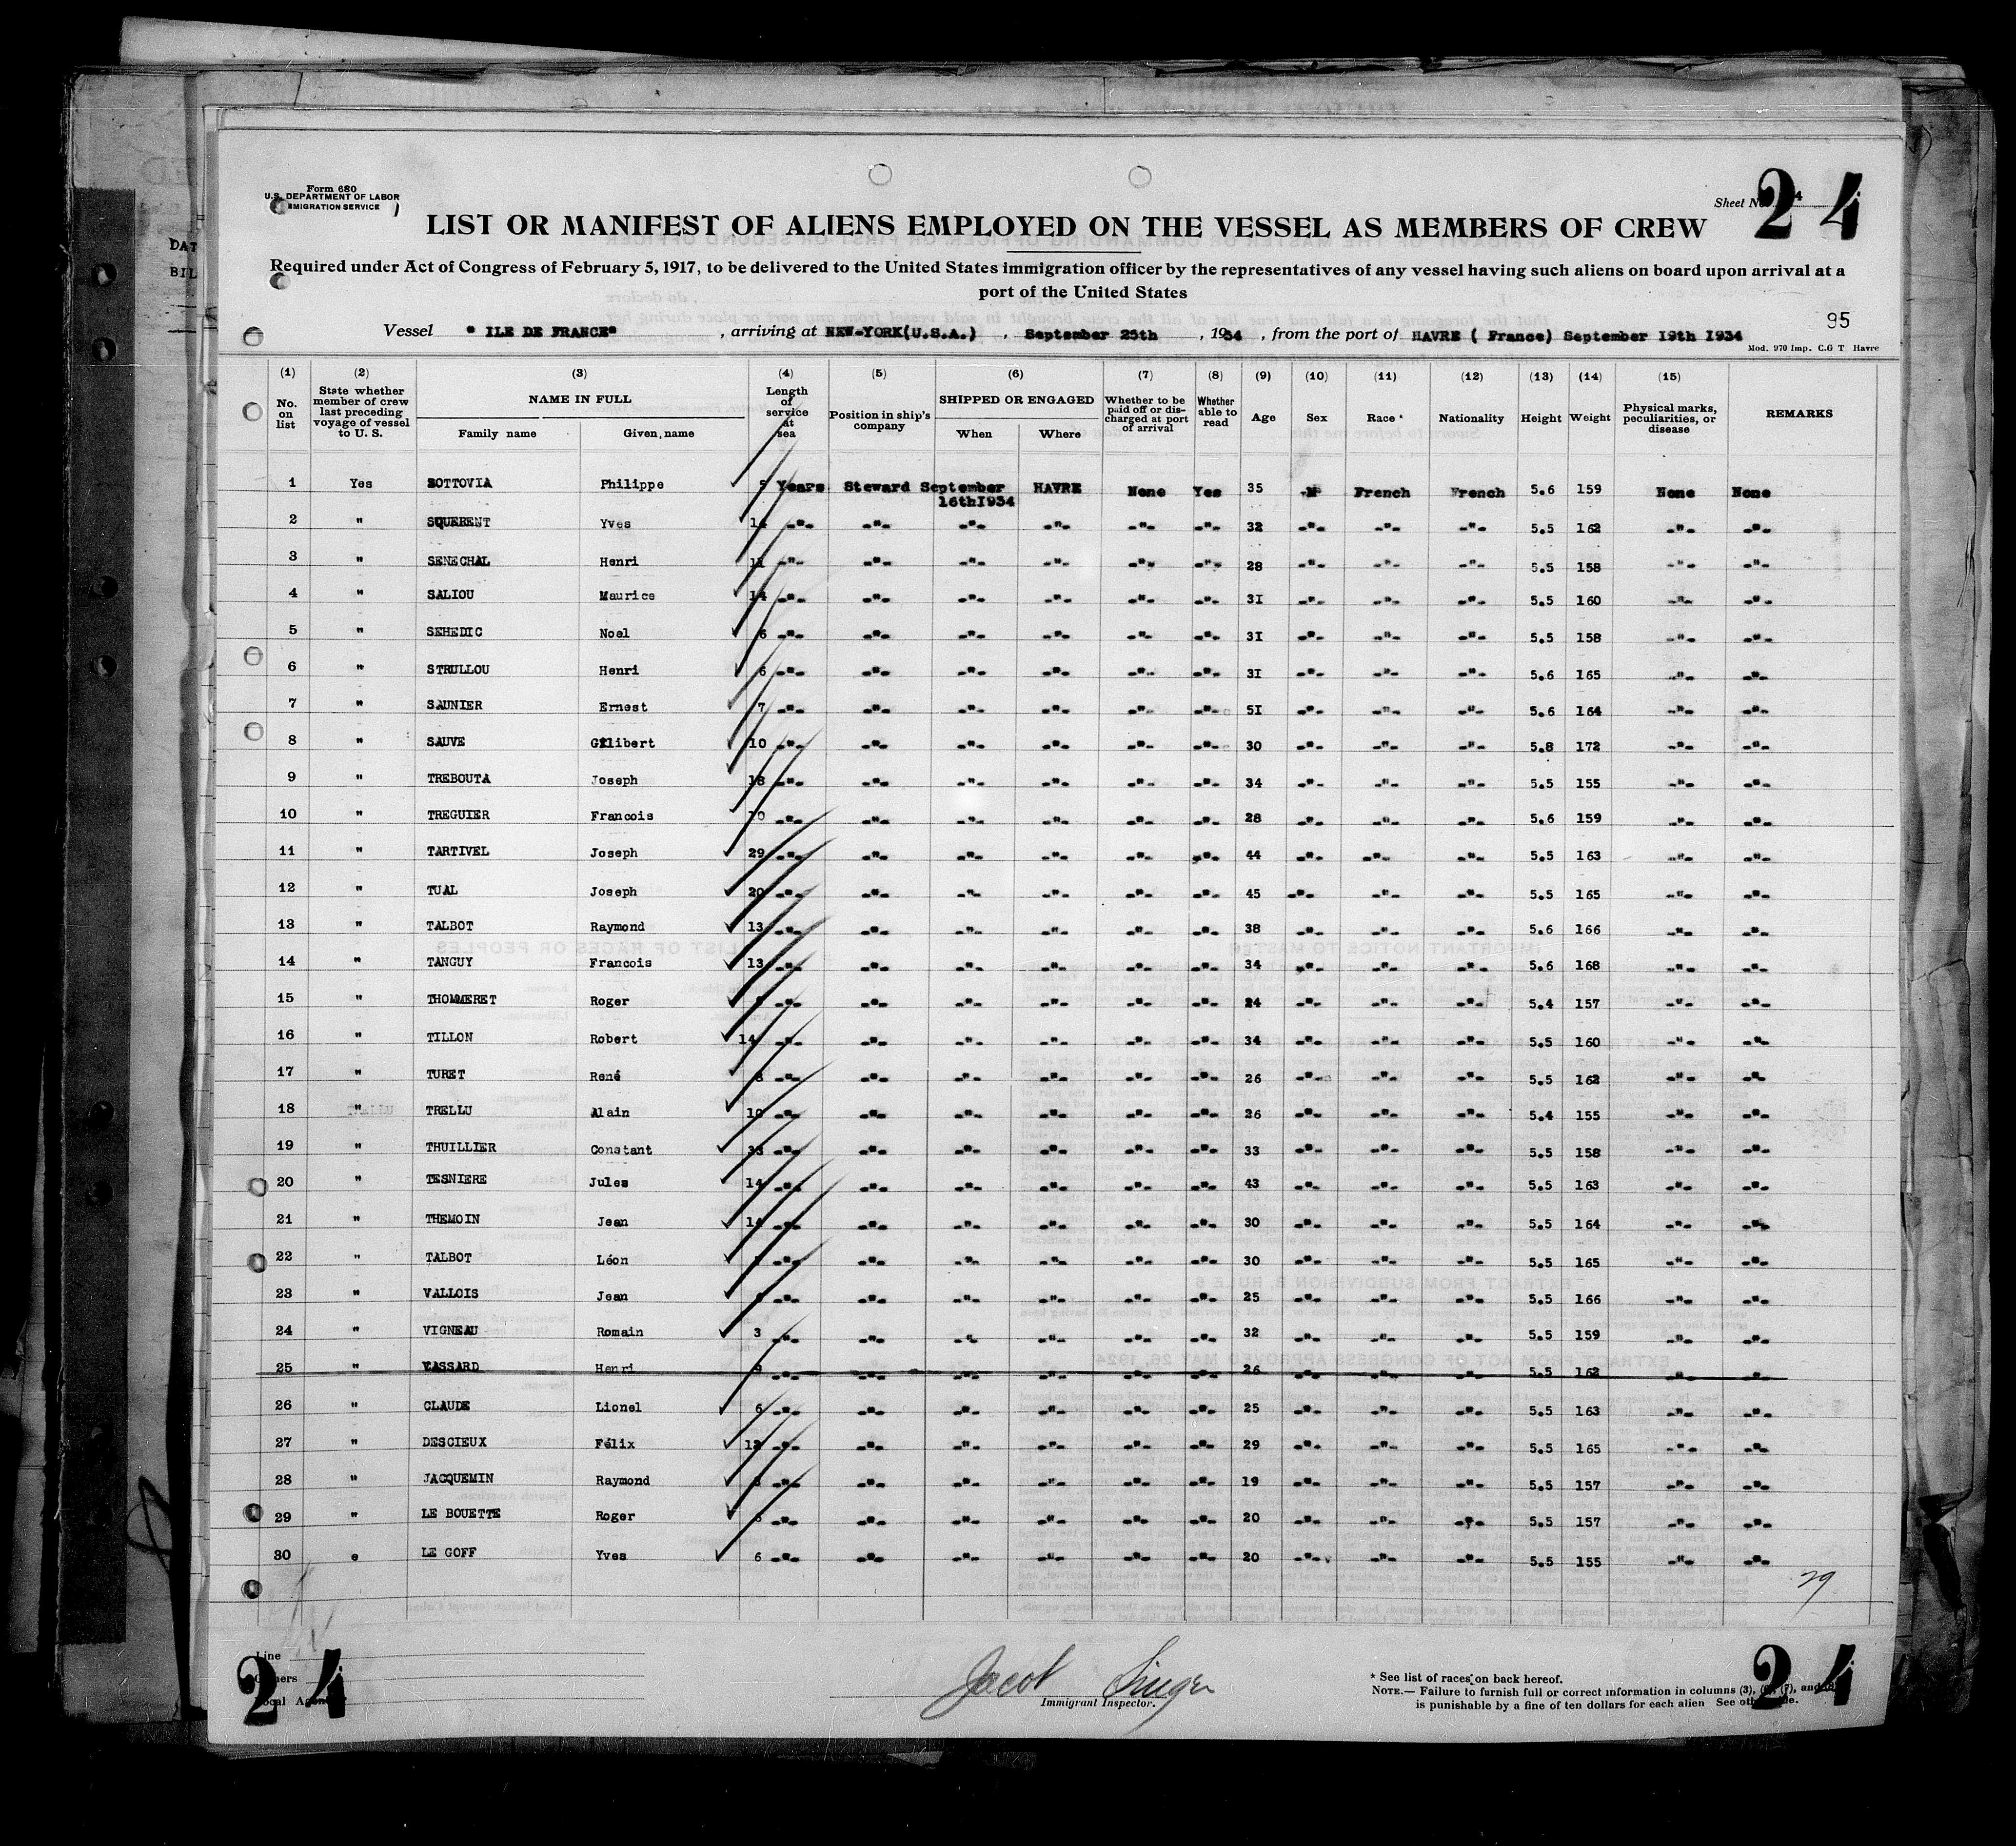 Form 680
U.S. DEPARTMENT OF LABOR
IMMIGRATION SERVICE
Sheet No. 24
LIST OR MANIFEST OF ALIENS EMPLOYED ON THE VESSEL AS MEMBERS OF CREW
Required under Act of Congress of February 5, 1917, to be delivered to the United States immigration officer by the representatives of any vessel having such aliens on board upon arrival at a
port of the United States
95
Vessel " ILE DE FRANCE" , arriving at NEW-YORK(U.S.A.) , September 25th , 1934 , from the port of HAVRE ( France) September 19th 1934
Mod. 970 Imp. C.G T Havre
(1) (2) (3) (4) (5) (6) (7) (8) (9) (10) (11) (12) (13) (14) (15)
No. on list State whether member of crew last preceding voyage of vessel to U. S. NAME IN FULL Family name Given name Length of service at sea Position in ship's company SHIPPED OR ENGAGED When Where Whether to be paid off or discharged at port of arrival Whether able to read Age Sex Race * Nationality Height Weight Physical marks, peculiarities, or disease REMARKS
1 Yes SOTTOVIA Philippe 5 Years Steward September 16th1934 HAVRE None Yes 35 M French French 5.6 159 None None
2 " SQUERENT Yves 14 -"- -"- -"- -"- -"- -"- 32 -"- -"- -"- 5.5 162 -"- -"-
3 " SENECHAL Henri 11 -"- -"- -"- -"- -"- -"- 28 -"- -"- -"- 5.5 158 -"- -"-
4 " SALIOU Maurice 14 -"- -"- -"- -"- -"- -"- 31 -"- -"- -"- 5.5 160 -"- -"-
5 " SEHEDIC Noel 6 -"- -"- -"- -"- -"- -"- 31 -"- -"- -"- 5.5 158 -"- -"-
6 " STRULLOU Henri 6 -"- -"- -"- -"- -"- -"- 31 -"- -"- -"- 5.6 165 -"- -"-
7 " SAUNIER Ernest 7 -"- -"- -"- -"- -"- -"- 51 -"- -"- -"- 5.6 164 -"- -"-
8 " SAUVE Gilibert 10 -"- -"- -"- -"- -"- -"- 30 -"- -"- -"- 5.8 172 -"- -"-
9 " TREBOUTA Joseph 18 -"- -"- -"- -"- -"- -"- 34 -"- -"- -"- 5.5 155 -"- -"-
10 " TREGUIER Francois 10 -"- -"- -"- -"- -"- -"- 28 -"- -"- -"- 5.6 159 -"- -"-
11 " TARTIVEL Joseph 29 -"- -"- -"- -"- -"- -"- 44 -"- -"- -"- 5.5 163 -"- -"-
12 " TUAL Joseph 20 -"- -"- -"- -"- -"- -"- 45 -"- -"- -"- 5.5 165 -"- -"-
13 " TALBOT Raymond 13 -"- -"- -"- -"- -"- -"- 38 -"- -"- -"- 5.6 166 -"- -"-
14 " TANGUY Francois 13 -"- -"- -"- -"- -"- -"- 34 -"- -"- -"- 5.6 168 -"- -"-
15 " THOMMERET Roger -"- -"- -"- -"- -"- -"- 24 -"- -"- -"- 5.4 157 -"- -"-
16 " TILLON Robert 14 -"- -"- -"- -"- -"- -"- 34 -"- -"- -"- 5.5 160 -"- -"-
17 " TURET René 8 -"- -"- -"- -"- -"- -"- 26 -"- -"- -"- 5.5 162 -"- -"-
18 " TRELLU Alain 10 -"- -"- -"- -"- -"- -"- 26 -"- -"- -"- 5.4 155 -"- -"-
19 " THUILLIER Constant 33 -"- -"- -"- -"- -"- -"- 33 -"- -"- -"- 5.5 158 -"- -"-
20 " TESNIERE Jules 14 -"- -"- -"- -"- -"- -"- 43 -"- -"- -"- 5.5 163 -"- -"-
21 " THEMOIN Jean 14 -"- -"- -"- -"- -"- -"- 30 -"- -"- -"- 5.5 164 -"- -"-
22 " TALBOT Léon -"- -"- -"- -"- -"- -"- 30 -"- -"- -"- 5.5 165 -"- -"-
23 " VALLOIS Jean -"- -"- -"- -"- -"- -"- 25 -"- -"- -"- 5.5 166 -"- -"-
24 " VIGNEAU Romain 3 -"- -"- -"- -"- -"- -"- 32 -"- -"- -"- 5.5 159 -"- -"-
25 " VASSARD Henri 9 -"- -"- -"- -"- -"- -"- 26 -"- -"- -"- 5.5 162 -"- -"-
26 " CLAUDE Lionel 6 -"- -"- -"- -"- -"- -"- 25 -"- -"- -"- 5.5 163 -"- -"-
27 " DESCIEUX Félix 12 -"- -"- -"- -"- -"- -"- 29 -"- -"- -"- 5.5 165 -"- -"-
28 " JACQUEMIN Raymond -"- -"- -"- -"- -"- -"- 19 -"- -"- -"- 5.5 157 -"- -"-
29 " LE BOUETTE Roger -"- -"- -"- -"- -"- -"- 20 -"- -"- -"- 5.5 157 -"- -"-
30 e LE GOFF Yves 6 -"- -"- -"- -"- -"- -"- 20 -"- -"- -"- 5.5 155 -"- -"-
29
Line
Owners
Local Agents
24
Jacob Singer
Immigrant Inspector.
* See list of races on back hereof.
NOTE.— Failure to furnish full or correct information in columns (3), (6), (7), and (8)
is punishable by a fine of ten dollars for each alien See other side.
24